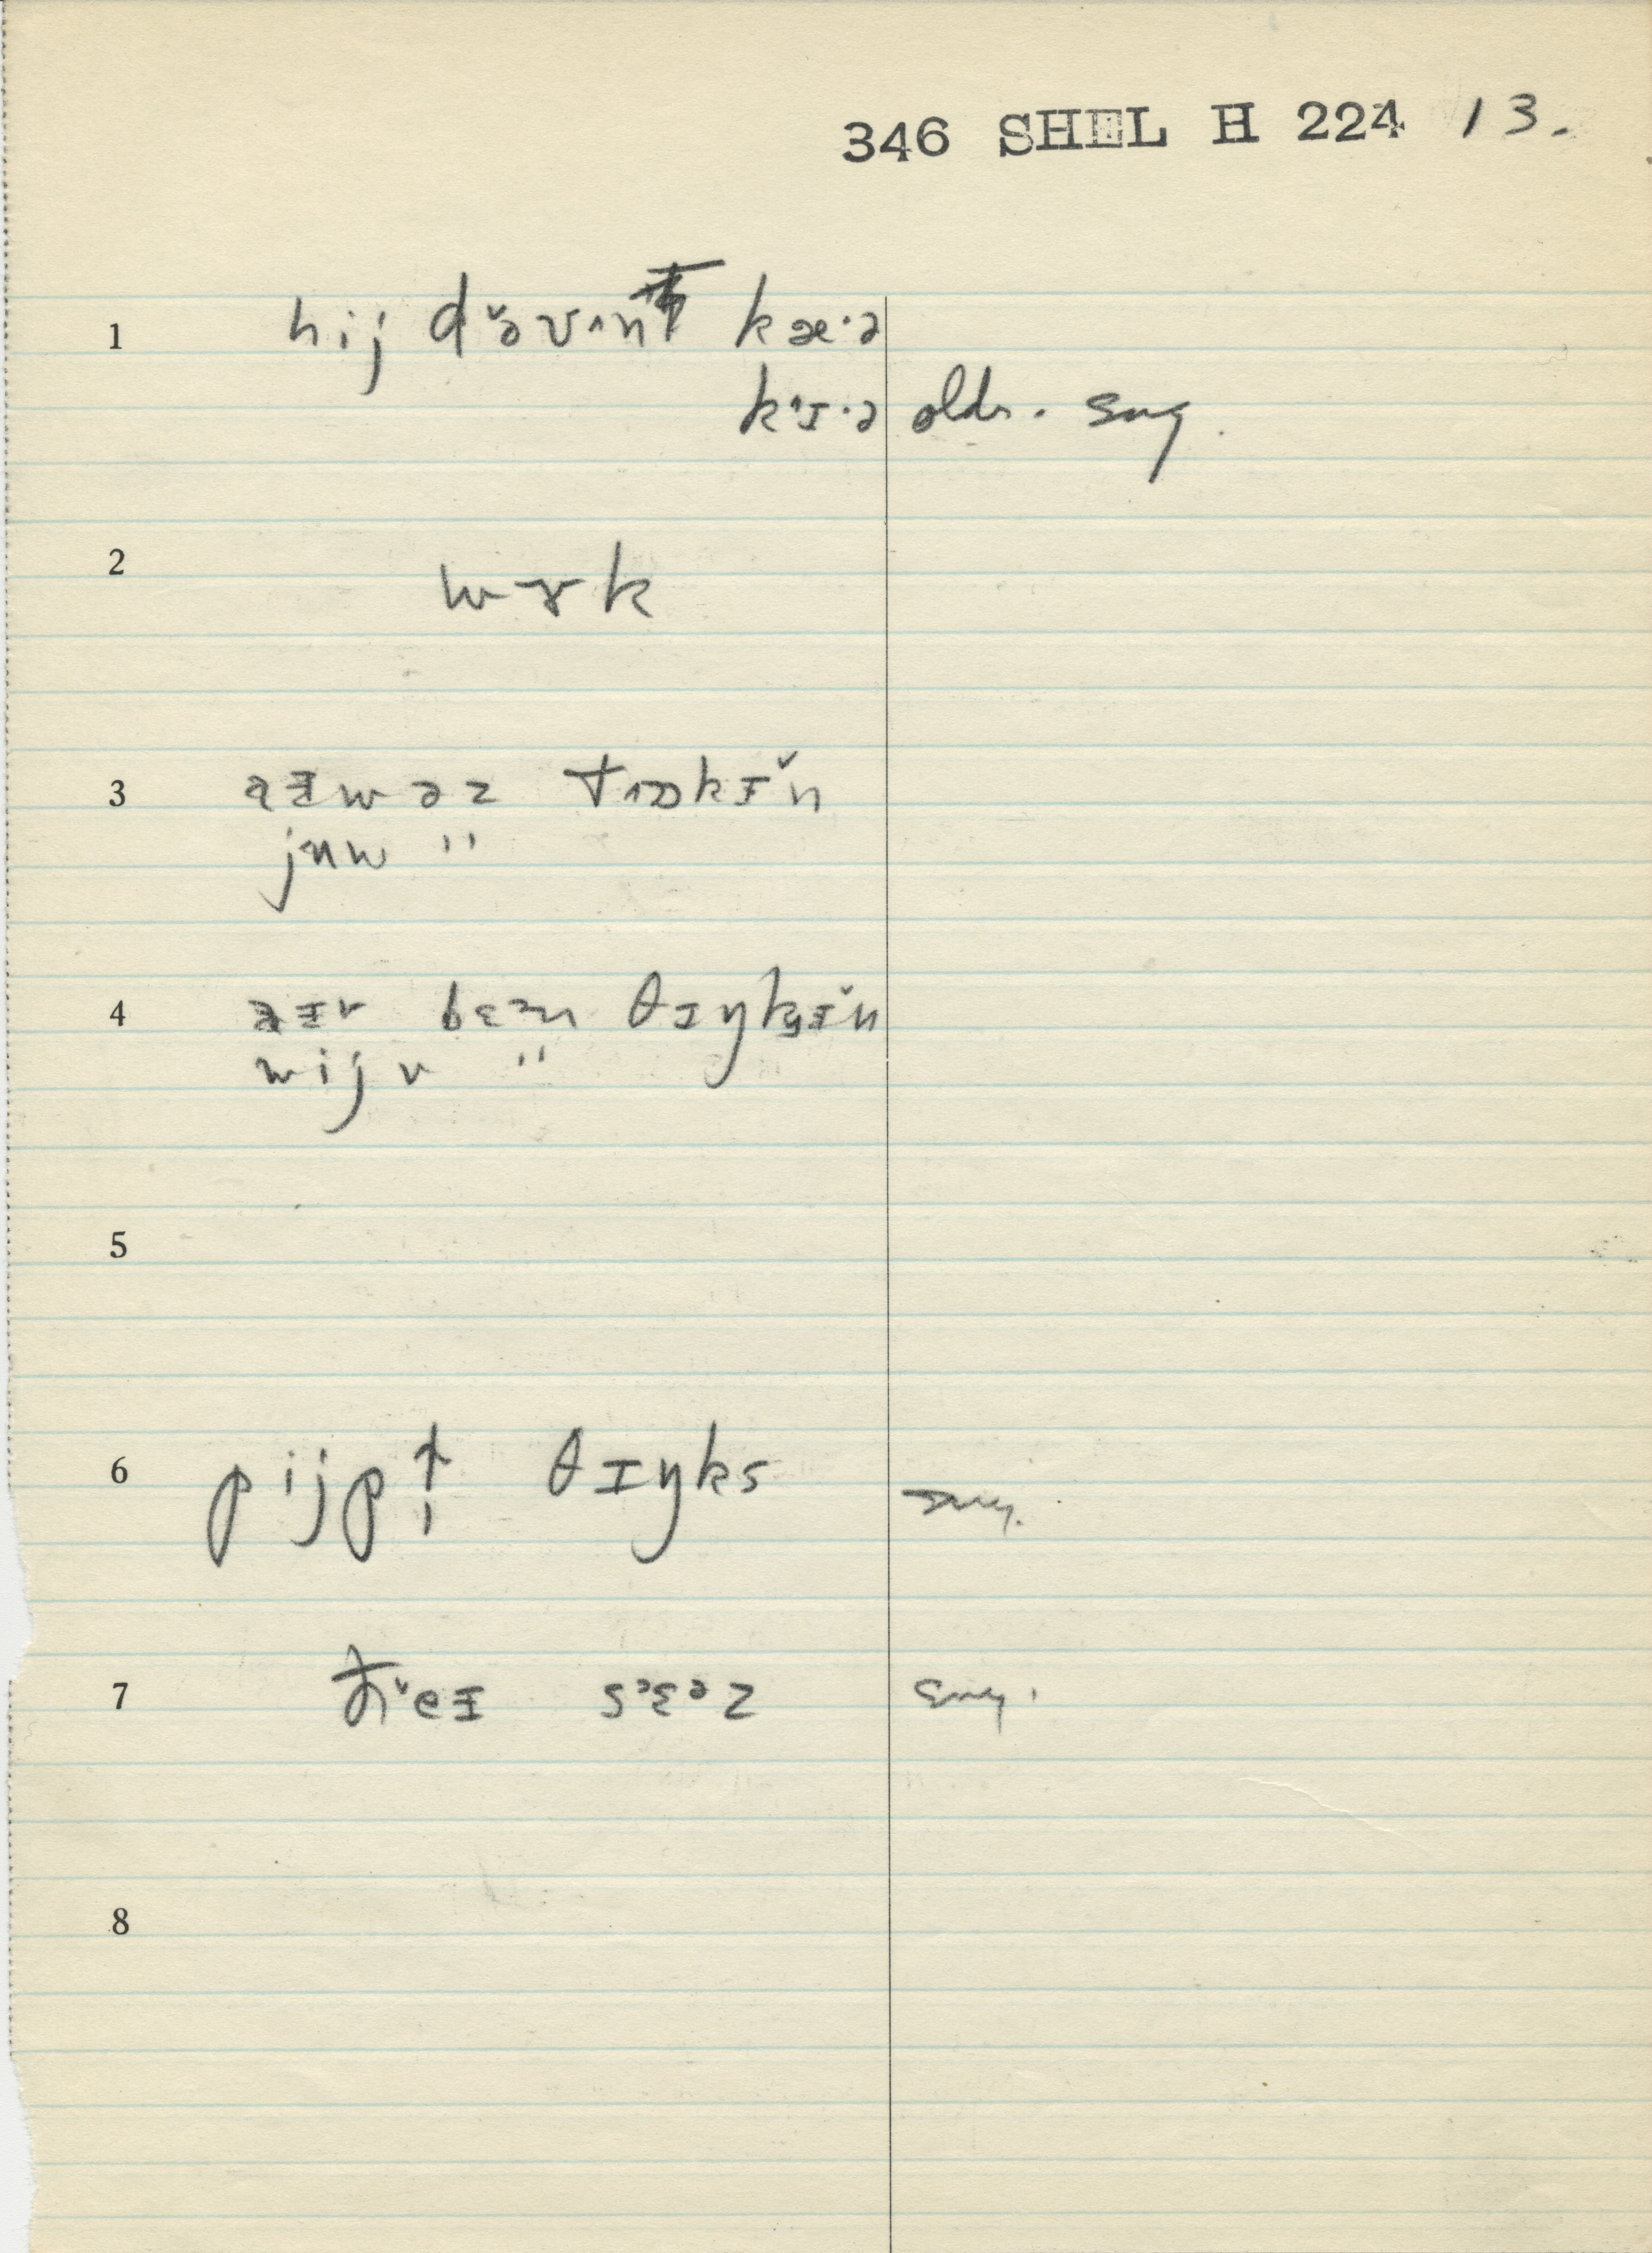 346 SHEL H 224 13.
1 hij də̆v^n kæ·ə
k^ɪ·ə oldr. sug.
2 wɤk
3 aᵻwəz tɒkᵻ̆n
jʉw "
4 aᵻv bɛ^ɪn θɪŋkᵻ̆n
wijv "
5
6 pijpl̩ θɪŋks sug.
7 ðeᵻ sɛᵊz sug.
8